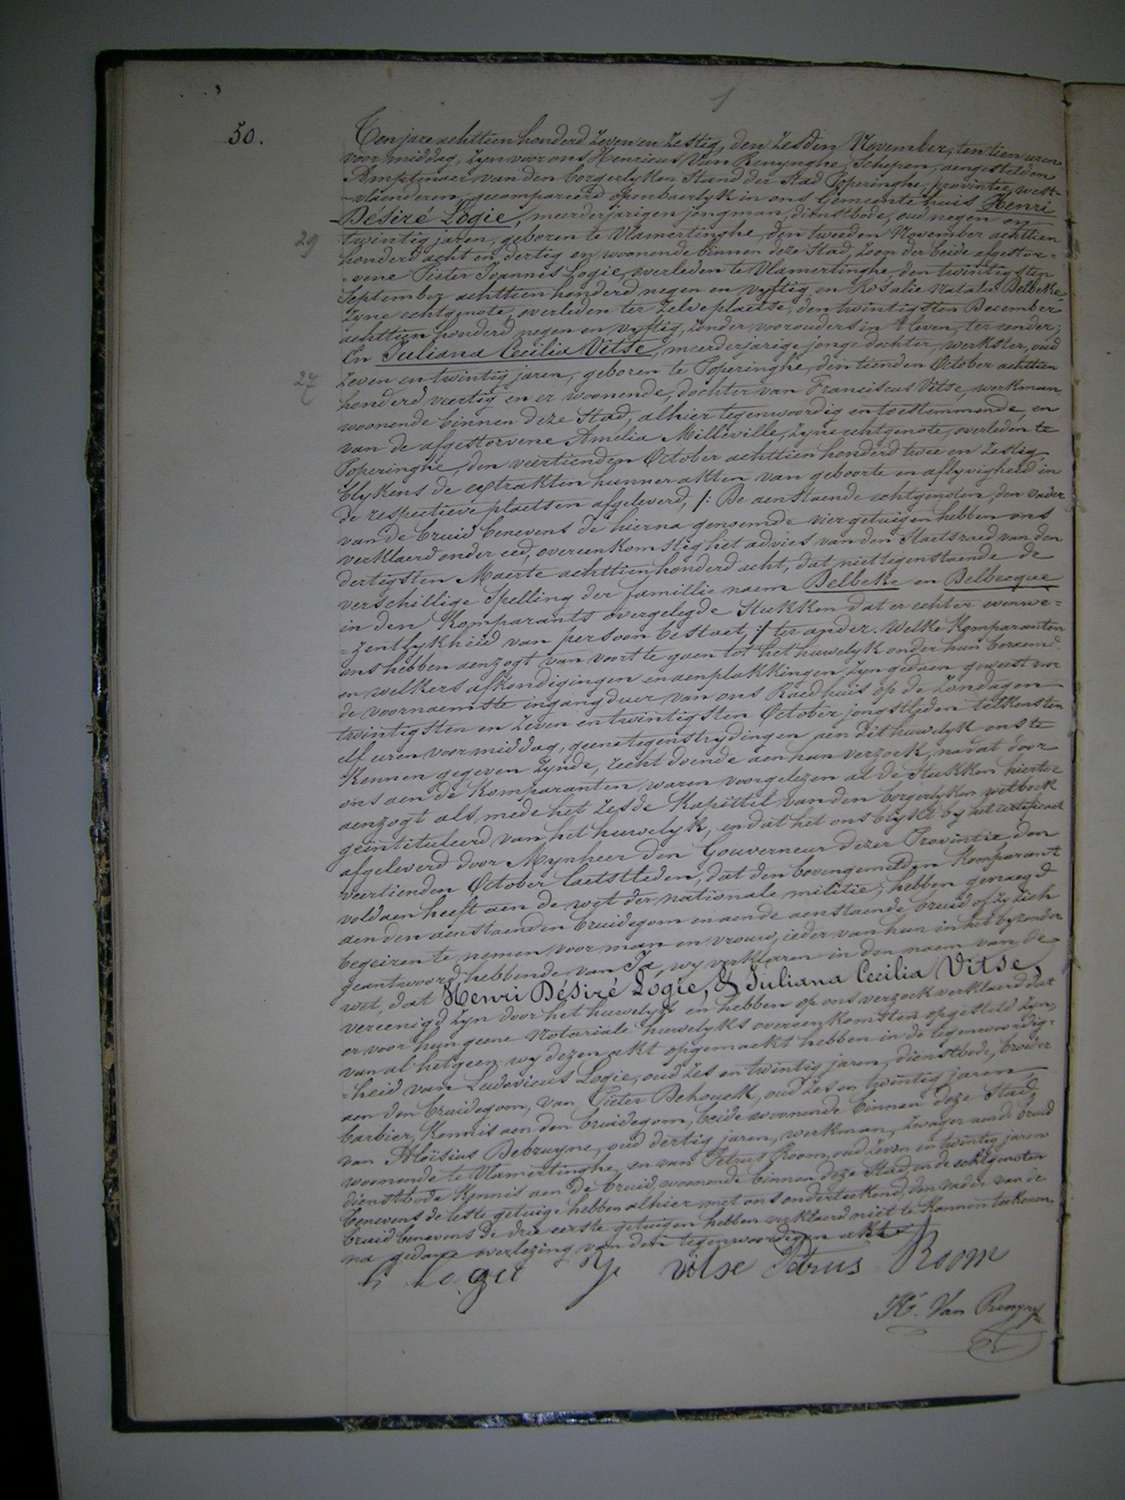 50.
Ten jare achttien honderd zeven en zestig, den zesden November, ten tien uren
voor middag, zyn voor ons Henricus Van Renynghe, Schepen, aengestelden
Amptenaer van den borgerlyken Stand der Stad Poperinghe, provintie west-
-vlaenderen, gecompareerd openbaerlyk in ons Gemeentehuis Henri
Désiré Logie, meerderjarigen jongman, dienstbode, oud negen en
29
twintig jaren, geboren te Vlamertinghe, den tweeden November achttien
honderd acht en dertig en woonende binnen deze Stad, zoon der beide afgestor-
-vene Pieter Joannes Logie, overleden te Vlamertinghe, den twintigsten
September achttien honderd negen en vyftig en Rosalie Natalie Delbeke
zyne echtgenote, overleden ter zelve plaetse, den twintigsten December
achttien honderd negen en vyftig, zonder voorouders in 't leven, ter eender;
En Juliana Cecilia Vitse, meerderjarige jonge dochter, werkster, oud
27
zeven en twintig jaren, geboren te Poperinghe, den tienden October achttien
honderd veertig en er woonende, dochter van Franciscus Vitse, werkman
woonende binnen deze Stad, alhier tegenwoordig en toestemmende, en
van de afgestorvene Amelia Milleville, zyne echtgenote, overleden te
Poperinghe, den veertienden October achttien honderd twee en zestig
blykens de extrakten hunner akten van geboorte en aflyvigheid in
de respectieve plaetsen afgeleverd, /: De aenstaende echtgenoten, den vader
van de bruid benevens de hierna genoemde vier getuigen hebben ons
verklaerd onder eed, overeenkomstig het advies van den Staetsraed van den
dertigsten Maerte achttien honderd acht, dat niettegenstaende de
verschillige Spelling der famillie naem Delbeke en Delbecque
in den Komparants overgelegde Stukken dat er echter eenwe-
-zentlykheid van persoon bestaet, :/ ter ander. Welke Komparanten
ons hebben aenzogt van voort te gaen tot het huwelyk onder hun beraemd
en welkers afkondigingen en aenplakkingen zyn gedaen geweest voor
de voornaemste ingangduer van ons Raedhuis op de zondagen
twintigsten en zeven en twintigsten October jongstleden telkens ten
elf uren voormiddag, geene tegenstrydingen aen dit huwelyk ons te
Kennen gegeven zynde, recht doende aen hun verzoek, na dat door
ons aen de Komparanten waren voorgelezen al de Stukken hierter
aenzogt als mede het zesde Kapittel van den borgerlyken wetboek
geïntituleerd van het huwelyk, en dat het ons blykt by het certificaet
afgeleverd door Mynheer den Gouverneur dezer Provintie, den
veertienden October laetstleden, dat den bovengemelden Komparant
voldaen heeft aen de wet der nationale militie, hebben gevraegd
aen den aenstaenden bruidegom en aen de aenstaende bruid of zy zich
begeiren te nemen voor man en vrouw, ieder van hun in het byzonder
geantwoord hebbende van Ja, wy verklaren in den naem van de
wet, dat Henri Désiré Logie, & Juliana Cecilia Vitse,
vereenigd zyn door het huwelyk en hebben op ons verzoek verklaerd dat
er voor hun geene Notariale huwelyks overeenkomsten opgesteld zyn,
van al het geen wy dezen akt opgemaekt hebben in de tegenwoordig-
-heid van Ludovicus Logie, oud zes en twintig jaren, dienstbode, broeder
aen den bruidegom, van Pieter Dehouck, oud zes en twintig jaren,
barbier, Kennis aen den bruidegom, beide woonende binnen deze Stad,
van Aloïsius Debruyne, oud dertig jaren, werkman, zwager aen de bruid
woonende te Vlamertinghe, en van Petrus Room, oud zeven en twintig jaren
dienstbode Kennis aen de bruid, woonende binnen deze Stad, en de echtgenoten
benevens de leste getuige hebben alhier met ons onderteekend, den vader van de
bruid benevens de drie eerste getuigen hebben verklaerd niet te Konnen teekenen
na gedane overlezing van den tegenwoordigen akt
h Logie J vitse Petrus Room
H. Van Renyng